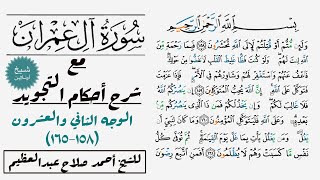 سورة آل عمران
مع
شرح أحكام التجويد
الوجه الثاني والعشرون
(١٥٨-١٦٥)
للشيخ أحمد صلاح عبدالعظيم
بِسْمِ اللَّهِ الرَّحْمَٰنِ الرَّحِيمِ
وَلَئِن مُّتُّمْ أَوْ قُتِلْتُمْ لَإِلَى اللَّهِ تُحْشَرُونَ ١٥٨ فَبِمَا رَحْمَةٍ مِّنَ
اللَّهِ لِنتَ لَهُمْ وَلَوْ كُنتَ فَظًّا غَلِيظَ الْقَلْبِ لَانفَضُّوا مِنْ حَوْلِكَ
فَاعْفُ عَنْهُمْ وَاسْتَغْفِرْ لَهُمْ وَشَاوِرْهُمْ فِي الْأَمْرِ فَإِذَا عَزَمْتَ
فَتَوَكَّلْ عَلَى اللَّهِ إِنَّ اللَّهَ يُحِبُّ الْمُتَوَكِّلِينَ ١٥٩ إِن يَنصُرْكُمُ
اللَّهُ فَلَا غَالِبَ لَكُمْ وَإِن يَخْذُلْكُمْ فَمَن ذَا الَّذِي يَنصُرُكُم
مِّن بَعْدِهِ وَعَلَى اللَّهِ فَلْيَتَوَكَّلِ الْمُؤْمِنُونَ ١٦٠ وَمَا كَانَ لِنَبِيٍّ أَن
يَغُلَّ وَمَن يَغْلُلْ يَأْتِ بِمَا غَلَّ يَوْمَ الْقِيَامَةِ ثُمَّ تُوَفَّىٰ كُلُّ
نَفْسٍ مَّا كَسَبَتْ وَهُمْ لَا يُظْلَمُونَ ١٦١ أَفَمَنِ اتَّبَعَ رِضْوَانَ